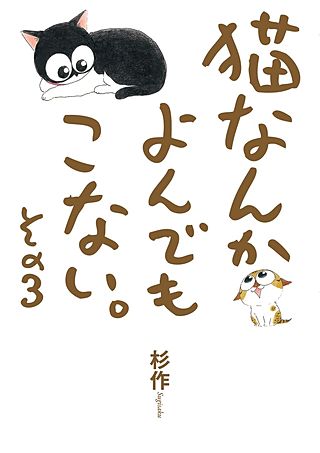 猫なんか
よんでも
こない。
その3
杉作
Sugisaku